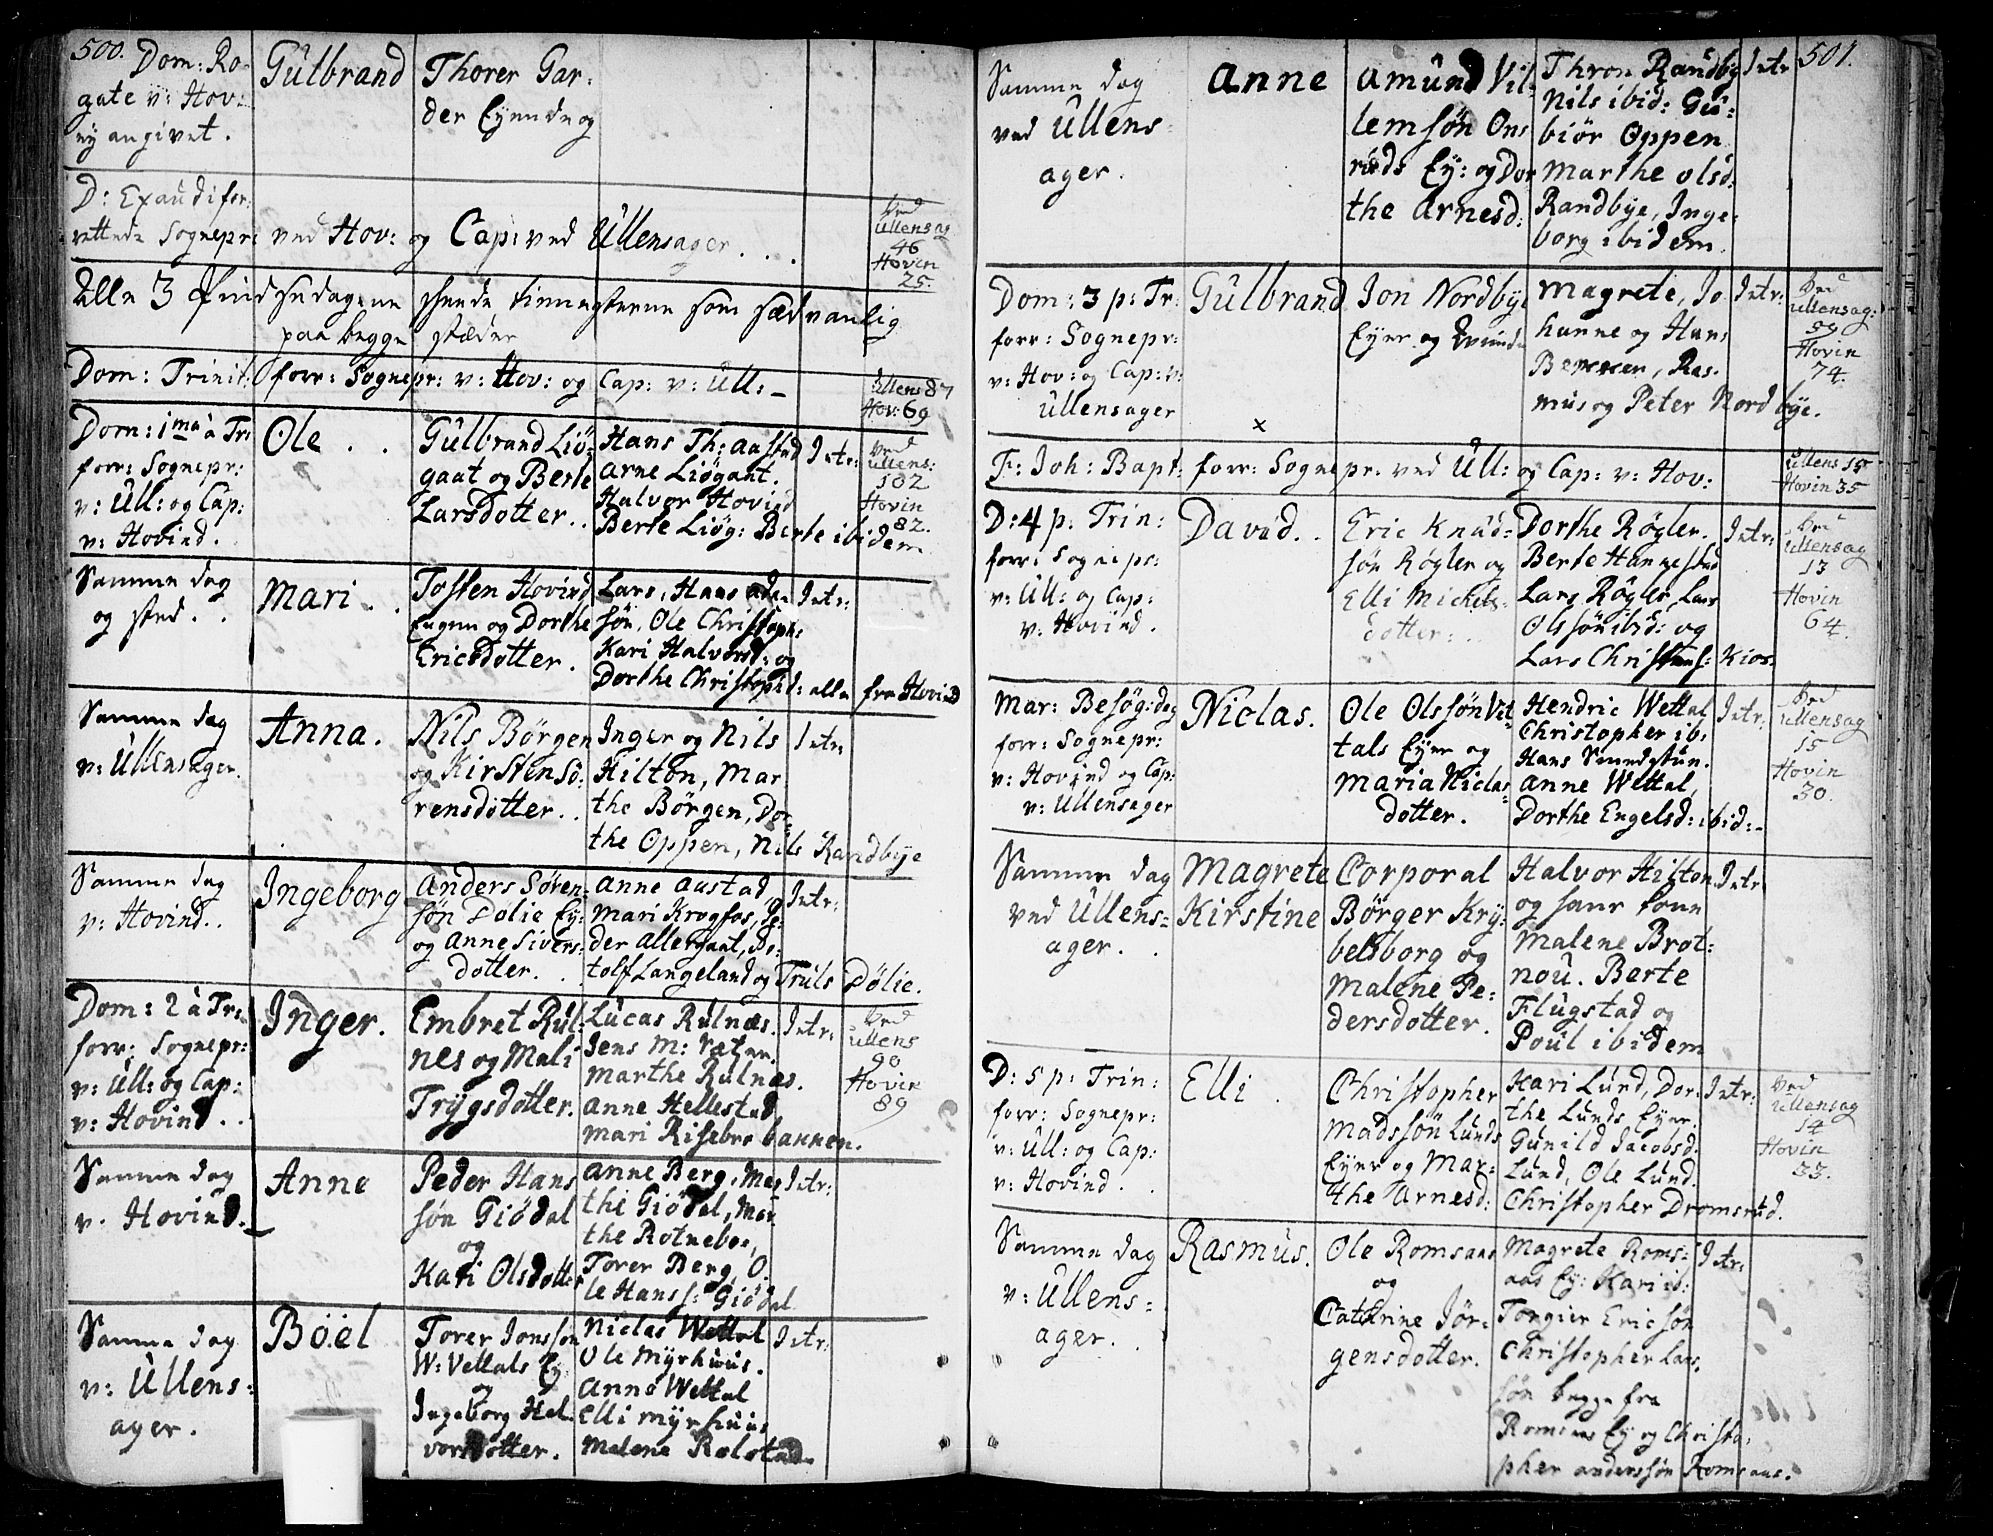 500. Dom: Ro-
gate v: Hov:
ey angivet.
Gulbrand
Thorer Gar-
der Eyende og
D: Exaudi for:
rettede Sognepr: ved Hov: og Cap: ved Ullensager...
Ved
Ullensag
46
Hovin
25.
Alle 3 Pindsedagene skeede tienesterne som sædvanlig
paa begge stæder
Dom: Trinit: forr: Sognepr: v: Hov: og Cap: v: Ull: -
Ullens 87
Hov: 69
Dom: 1ma à Tr:
forr: Sognepr:
v: Ull: og Cap:
v: Hovind.
Ole . .
Gulbrand Liö-
gaat og Berte
Larsdotter..
Hans Th: Aastad
Arne Liögaat.
Halvor Hovind
Berte Liög: Berte ibidem
Intr:
Ved
Ullens:
102
Hovin
82.
Samme dag
og sted. .
Mari . .
Tosten Hovind
Eygen og Dorthe
Ericsdotter.
Lars, Hans
søn, Ole Christoph:
Kari Halvorsd: og
Dorthe Christophd: alle fra Hovind
Intr:
Samme dag
v: Ullensager.
Anna.
Nils Börgen
og Kirsten Sö-
rensdotter..
Inger og Nils
Hilton, Mar
the Börgen, Dor-
the Oppen, Nils Randbye
Intr:
Samme dag
v: Hovind..
Ingeborg
Anders Søren-
søn Dølie Ey:
og Anne Sivers-
dotter.
Anne Austad,
Mari Krogfos,
der Allergaat,
tolf Langeland og Truls Dölie.
Intr:
Dom: 2 à Tr:
forr: Sognepr:
v: Ull: og Cap:
v: Hovind..
Inger.
Embret Rul-
nes og Mali
Trygsdotter.
Lucas Rulnæs.
Jens M: Ræten.
Marthe Rulnæs.
Anne Hellestad
Mari Risebro
Intr:
Ved
Ullens
90
Hovin
89
Samme dag
v. Hovind.
Anne
Peder Hans
søn Giödal
og
Kari Olsdotter
Anne Berg, Mar
the Giödal, Mar
the Rotneboe,
Torer Berg, O.
le Hanss: Giödal
Intr:
Samme dag
v: Ullens-
ager.
Böel
Torer Jonssøn
W: Vettals Ey
og
Ingeborg Hal-
vorsdotter.
Niclas Wettal
Ole Myrhuus.
Anne Wettal
Elli Myrhuus
Malene Rolstad
Intr:
501.
Samme dag
ved Ullens-
ager.
Anne
Amund Vil-
lemsøn Ons
ruds Ey: og Dor
the Arnesd:
Thron Randby
Nils ibid: Gu-
biör Oppen
Marthe Olsd:
Randbye, Inge-
borg ibidem.
Intr
Dom: 3 p: Tr:
forr: Sognepr:
v: Hov: og Cap: v:
Ullensager
Gulbrand
Jon Nordbye
Eyer og Qvinde
Magrete, Jo
hanne og Hans
Ras-
mus og Peter Nordbye.
Intr:
Ved
Ullensag:
59
Hovin
74.
F: Joh: Bapt: forr: Sognepr. ved Ull: og Cap: v: Hov:
Ullens 15
Hovin 35
D: 4 p: Trin:
forr: Sognepr:
v: Ull: og Cap:
v: Hovind.
David..
Eric Knud-
søn Røgler og
Elli Mickels-
dotter:
Dorthe Røgler.
Berte Hannestad
Lars Røgler, Lars
Olssön ibid: og
Lars Christens: Kios.
Intr:
Ved
Ullensag
13
Hovin
64.
Mar: Besøg: dag
forr: Sognepr:
v: Hovind og Cap:
v: Ullensager
Niclas.
Ole Olssøn Vet-
tals Eyer og
Maria Niclas-
dotter.
Hendric Wettal
Christopher ib:
Hans
Anne Wettal,
Dorthe Engelsd: ibid: -
Intr:
Ved
Ullensag
15
Hovin
30.
Samme dag
ved Ullens-
ager. .
Magrete
Kirstine
Corporal
Börger Kry-
belsborg og
Malene Pe-
dersdotter.
Halvor Hilton
og hans kone
Malene Brot-
nou. Berte
Flugstad og
Poul ibidem
Intr:
D: 5 p: Trin:
forr: Sognepr:
v: Ull: og Cap:
v: Hovind. .
Elli .
Christopher
Madssön Lunds
Eyer og Mar-
the Arnesd:
Kari Lund, Dor-
the Lunds Eyer
Gunild Jacobsd.
Lund, Ole Lund.
Christopher Dromsrud.
Intr:
Ved
Ullensag
14
Hovin
33.
Samme dag
v: Ullens-
ager. .
Rasmus.
Ole Romsaas
og
Cathrine Jör-
gensdotter.
Magrete Roms-
aas Ey: Kari is:
Torgier Ericsøn
Christopher Lars-
søn begge fra
Romsaas Ey og Christo-
pher Anderssøn Romsaas.
Intr: